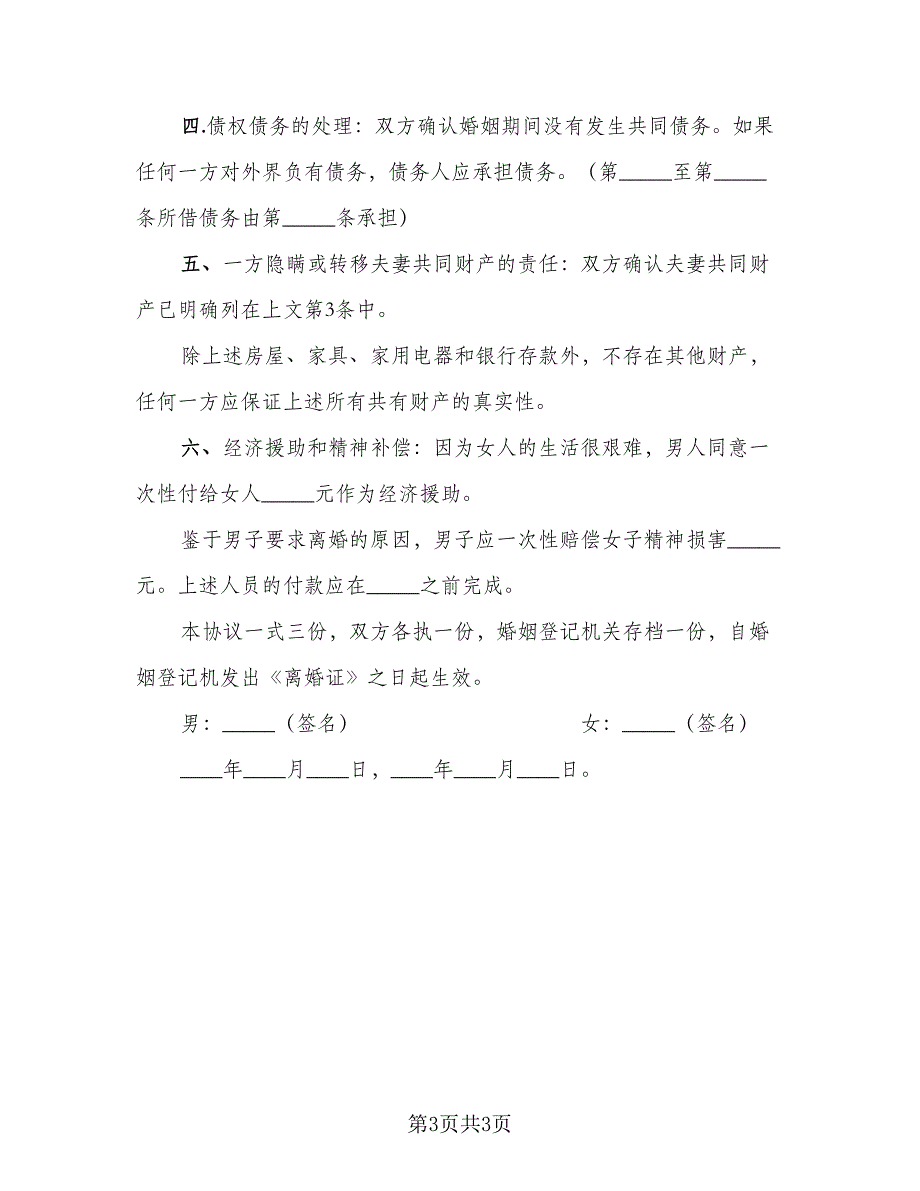 四.债权债务的处理：双方确认婚姻期间没有发生共同债务。如果
任何一方对外界负有债务，债务人应承担债务。（第_____至第_____
条所借债务由第_____条承担）
五、一方隐瞒或转移夫妻共同财产的责任：双方确认夫妻共同财
产已明确列在上文第3条中。
除上述房屋、家具、家用电器和银行存款外，不存在其他财产，
任何一方应保证上述所有共有财产的真实性。
六、经济援助和精神补偿：因为女人的生活很艰难，男人同意一
次性付给女人_____元作为经济援助。
鉴于男子要求离婚的原因，男子应一次性赔偿女子精神损害_____
元。上述人员的付款应在_____之前完成。
本协议一式三份，双方各执一份，婚姻登记机关存档一份，自婚
姻登记机发出《离婚证》之日起生效。
男：_____（签名） 女：_____（签名）
____年____月____日，____年____月____日。
第3页共3页